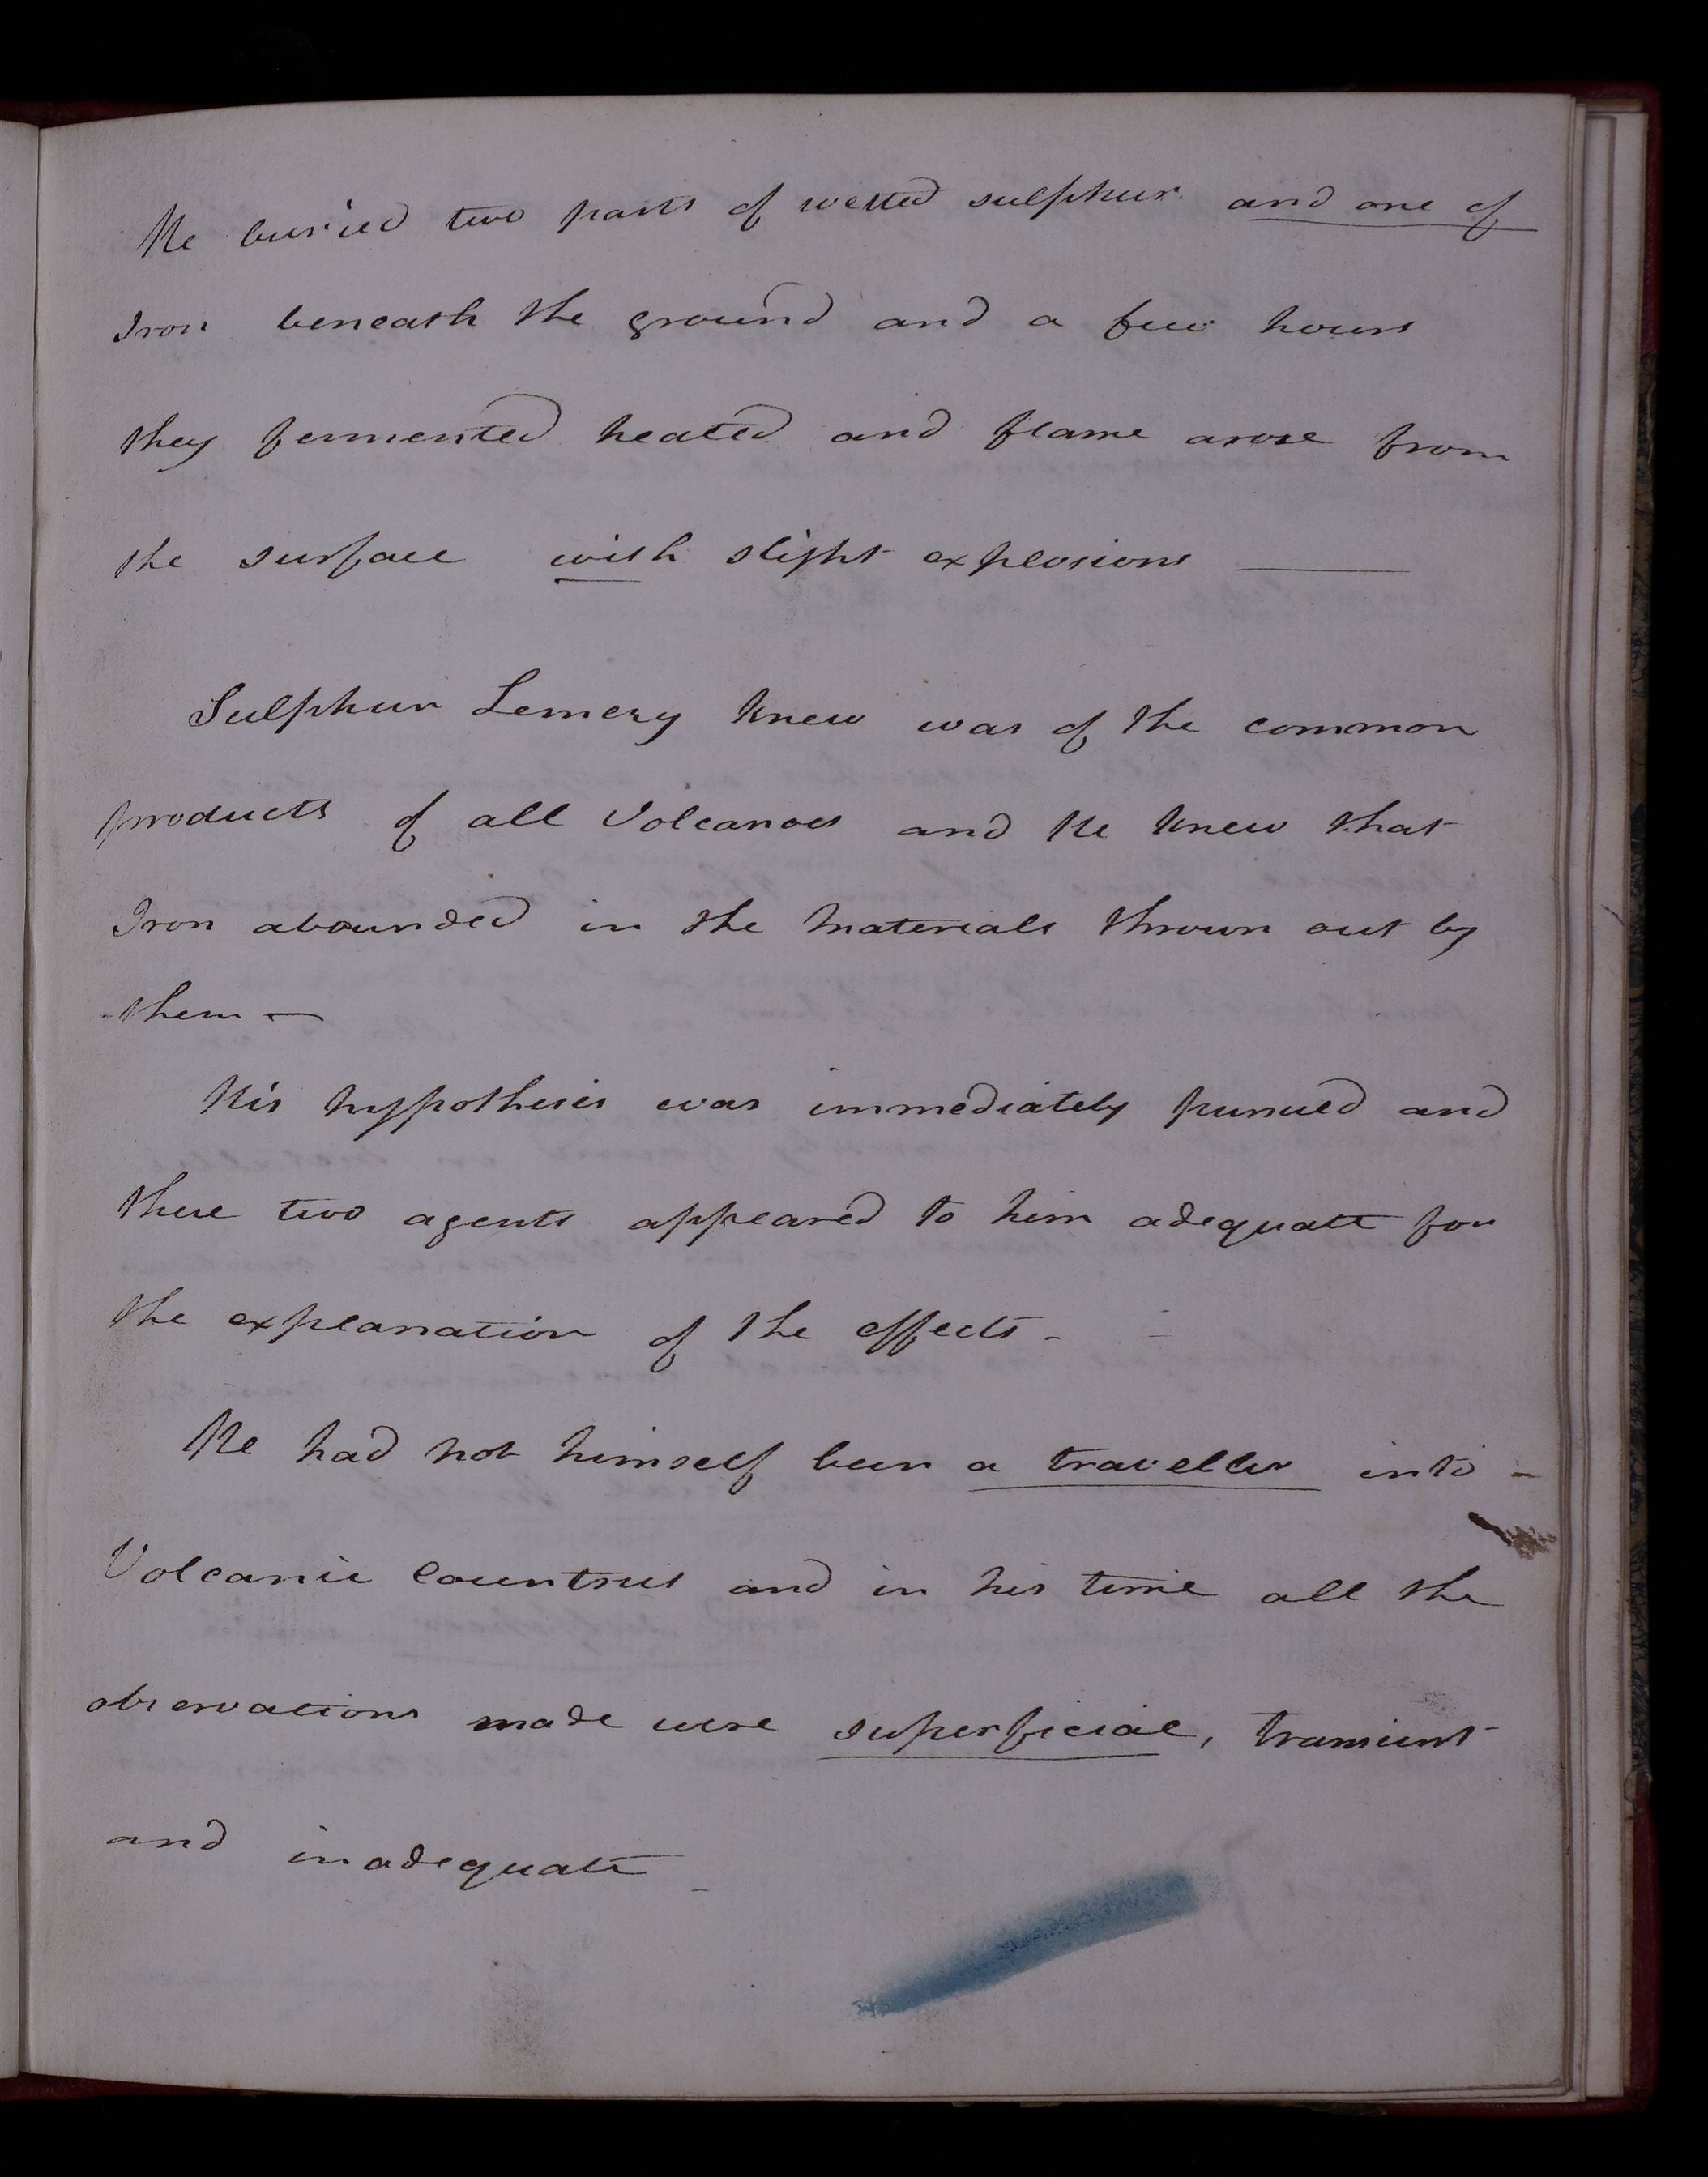 He buried two parts of wetted sulphur and one of
Iron beneath the ground and a few hours
they fermented heated and flame arose from
the surface with slight explosions ———
Sulphur Lemery knew was of the common
products of all Volcanoes and He knew that
Iron abounded in the materials thrown out by
them —
His hypothesis was immediately pursued and
these two agents appeared to him adequate for
the explanation of the effects -
He had not himself been a traveller into -
Volcanic Countries and in his time all the
observations made were superficial, transient
and inadequate -